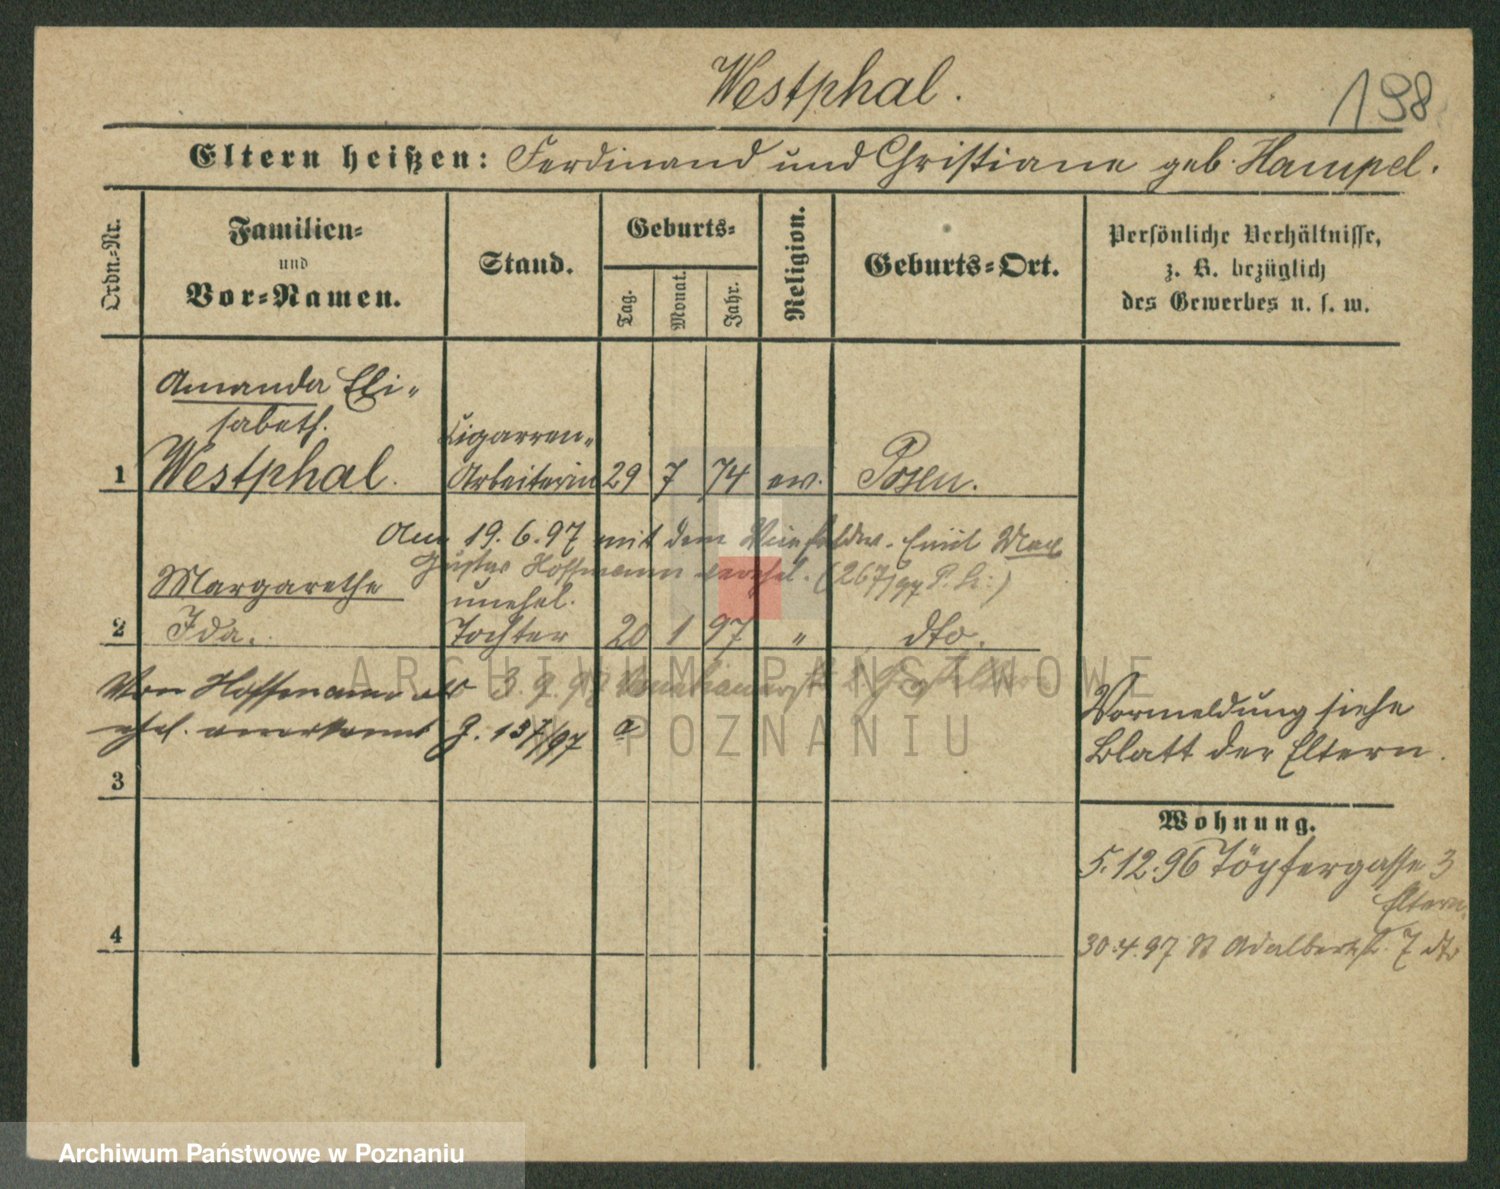 Westphal.
198
Eltern heißen: Ferdinand und Christiane geb. Hampel.
Ordn.-Nr.
Familien-
und
Vor-Namen.
Stand.
Geburts-
Tag.
Monat.
Jahr.
Religion.
Geburts-Ort.
Persönliche Verhältnisse,
z. B. bezüglich
des Gewerbes u. s. w.
Amanda Eli-
sabeth.
Cigarren-
1 Westphal. Arbeiterin 29 7 74 ev. Posen.
Am 19.6.97 mit dem Emil Max
Gustav Hoffmann verehel. (267/97 P. )
Margarethe unehel.
2 Ida. Tochter 20 1 97 " dto.
Von Hoffmann als 3.9.98
anerkannt J. 137/97
Vormeldung siehe
Blatt der Eltern.
3
Wohnung.
5.12.96 Töpfergasse 3
Eltern
4
30.4.97 St Adalbertst. 7 dto
ARCHIWUM PAŃSTWOWE
W POZNANIU
Archiwum Państwowe w Poznaniu